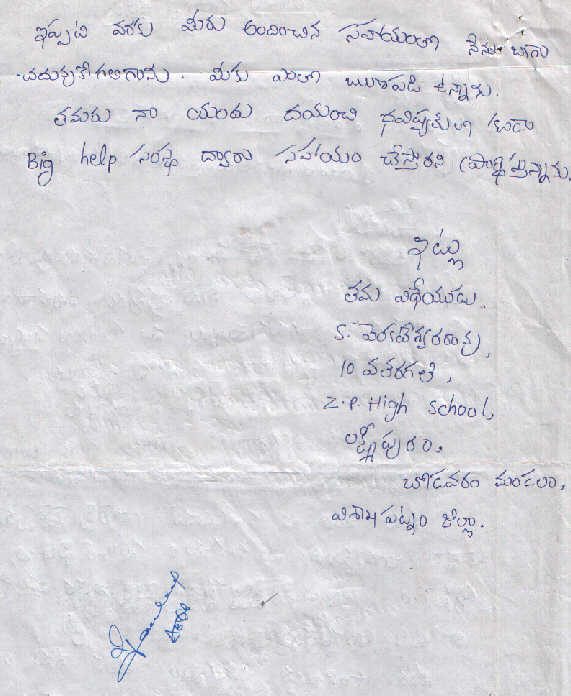 ఇప్పటి వరకు మీరు అందించిన సహాయంతో నేను బాగా
చదువుకోగలిగాను. మీకు ఎంతో ఋణపడి ఉన్నాను.
తమరు నా యందు దయుంచి భవిష్యత్తులో కూడా
Big help సంస్థ ద్వారా సహాయం చేస్తారని ప్రార్థిస్తున్నాను.
ఇట్లు
తమ విధేయుడు.
S. వెంకటేశ్వరరావు,
10 వతరగతి,
Z.P. High school,
లక్ష్మీపురం,
చోడవరం మండలం,
విశాఖపట్నం జిల్లా.